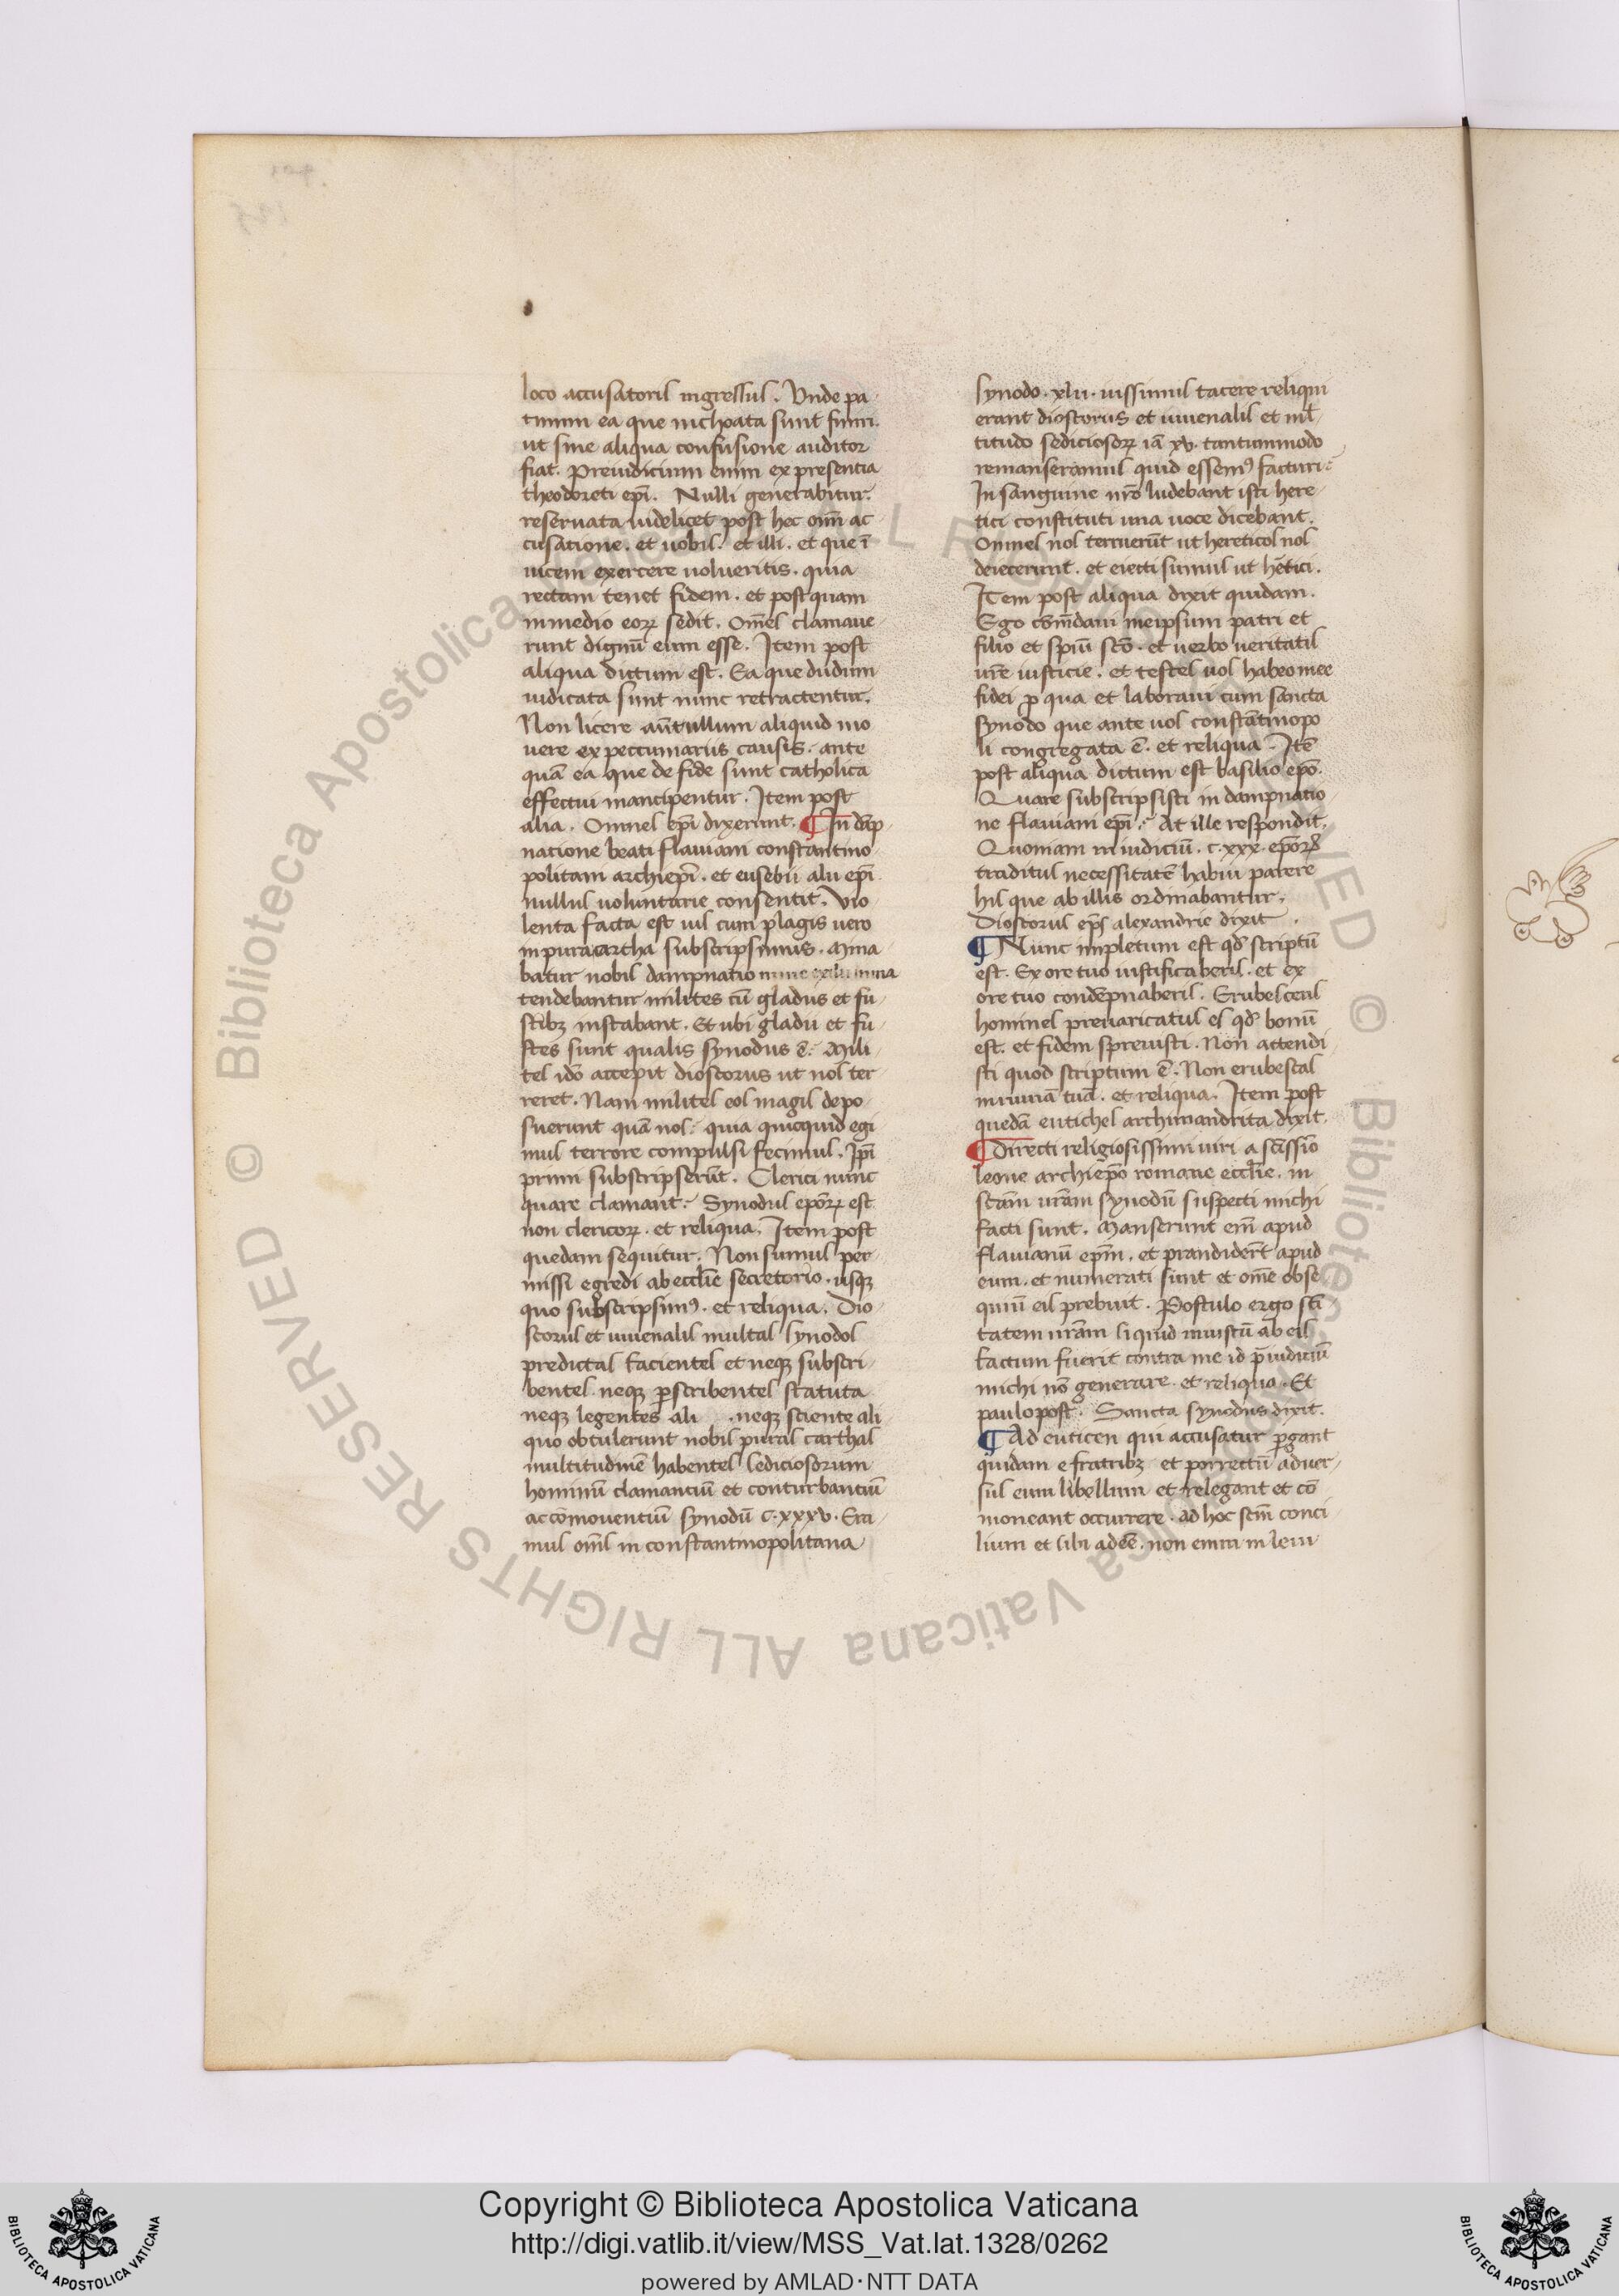 loco accusatoris ingressus. Unde pa
timini ea que inchoata sunt finiri.
ut sine aliqua confusione auditor
fiat. Preiudicium enim ex presentia
theodoreti ep̄i. Nulli generabitur.
reseruata uidelicet post hec om̄i ac
cusatione. et uobis. et illi. et que ī
uicem exercere uolueritis. quia
rectam tenet fidem. et postquam
inmedio eoꝝ sedit. Om̄es clamaue
runt dignū eum esse. Item post
aliqua dictum est. Ea que dudum
iudicata sunt nunc retractentur.
Non licere aūt ullum aliquid mo
uere ex peccuniariis causis. ante
quā ea que de fide sunt catholica
effectui mancipentur. Item post
alia. Omnes ep̄i dixerunt. ¶ In dāp
natione beati flauiani constantino
politani archiep̄i. et eusebii alii ep̄i
nullus uoluntarie consentit. Vio
lenta facta est uis cum plagis uero
inpura cartha subscripsimus. Mina
batur nobis dampnatio
tendebantur milites cū gladiis et fu
stibꝫ instabant. Et ubi gladii et fu
stes sunt qualis synodus ē. Mili
tes idō accepit dioscorus ut nos ter
reret. Nam milites eos magis depo
suerunt quā nos. quia quicquid egi
mus terrore compulsi fecimus. Ip̄i
primi subscripserūt. Clerici nunc
quare clamant. Synodus ep̄oꝝ est
non clericoꝝ. et reliqua. Item post
quedam sequitur. Non sumus per
missi egredi ab eccl̄ie secretorio. usqꝫ
quo subscripsimꝰ. et reliqua. Dio
scorus et iuuenalis multas synodos
predictas facientes et neqꝫ subscri
bentes neqꝫ ꝑscribentes statuta
neqꝫ legentes ali . neqꝫ sciente ali
quo obtulerunt nobis puras carthas
multitudinē habentes sediciosorum
hominū clamanciū et conturbanciū
ac cōmouentiū synodū c.xxxv. Era
mus om̄s in constantinopolitana
synodo. xlii. iussimus tacere reliqui
erant dioscorus et iuuenalis et ml̄
titudo sediciosoꝝ iā xv. tantummodo
remanseramus quid essemꝰ facturi
In sanguine nr̄o ludebant isti here
tici constituti una uoce dicebant.
Omnes nos terruerūt ut hereticos nos
deiecerunt. et eiecti sumus ut hētici.
Item post aliqua dixit quidam.
Ego cōmēdaui meipsum patri et
filio et spūi scō. et uerbo ueritatis
ur̄e iusticie. et testes uos habeo mee
fidei ꝓ qua et laboraui cum sancta
synodo que ante uos constātinopo
li congregata ē. et reliqua. Itē
post aliqua dictum est basilio ep̄o.
Quare subscripsisti in dampnatio
ne flauiani ep̄i. At ille respondit.
Quoniam in iudiciū. c.xxx. ep̄oꝝ
traditus necessitatē habui parere
his que ab illis ordinabantur.
Dioscorus ep̄s alexandrie dixit.
¶ Nunc impletum est qd̄ scriptū
est. Ex ore tuo iustificaberis. et ex
ore tuo condēpnaberis. Erubescens
homines preuaricatus es qd̄ bonū
est. et fidem spreuisti. Non attendi
sti quod scriptum ē. Non erubescas
in ruinā tuā. et reliqua. Item post
quedā eutiches archimandrita dixit.
¶ Directi religiosissimi uiri a sc̄issio
leone archiep̄o romane eccl̄ie. in
scām ur̄am synodū suspecti michi
facti sunt. Manserunt eīn apud
flauianū ep̄m. et prandidert̄ apud
eum. et numerati sunt et om̄e obse
quiū eis prebuit. Postulo ergo sc̄i
tatem ur̄am si quid iniustū ab eis
factum fuerit contra me id p̄iudiciū
michi nō generare. et reliqua. Et
paulo post. Sancta synodus dixit.
¶ Ad euticen qui accusatur ꝑgant
quidam e fratribꝫ et porrectū aduer
sus eum libellum et relegant et cō
moneant occurrere. ad hoc scm̄ conci
lium et sibi adeē. non enim in leui
Copyright © Biblioteca Apostolica Vaticana
http://digi.vatlib.it/view/MSS_Vat.lat.1328/0262
powered by AMLAD·NTT DATA
BIBLIOTECA APOSTOLICA VATICANA
BIBLIOTECA APOSTOLICA VATICANA
© Biblioteca Apostolica Vaticana ALL RIGHTS RESERVED
© Biblioteca Apostolica Vaticana ALL RIGHTS RESERVED